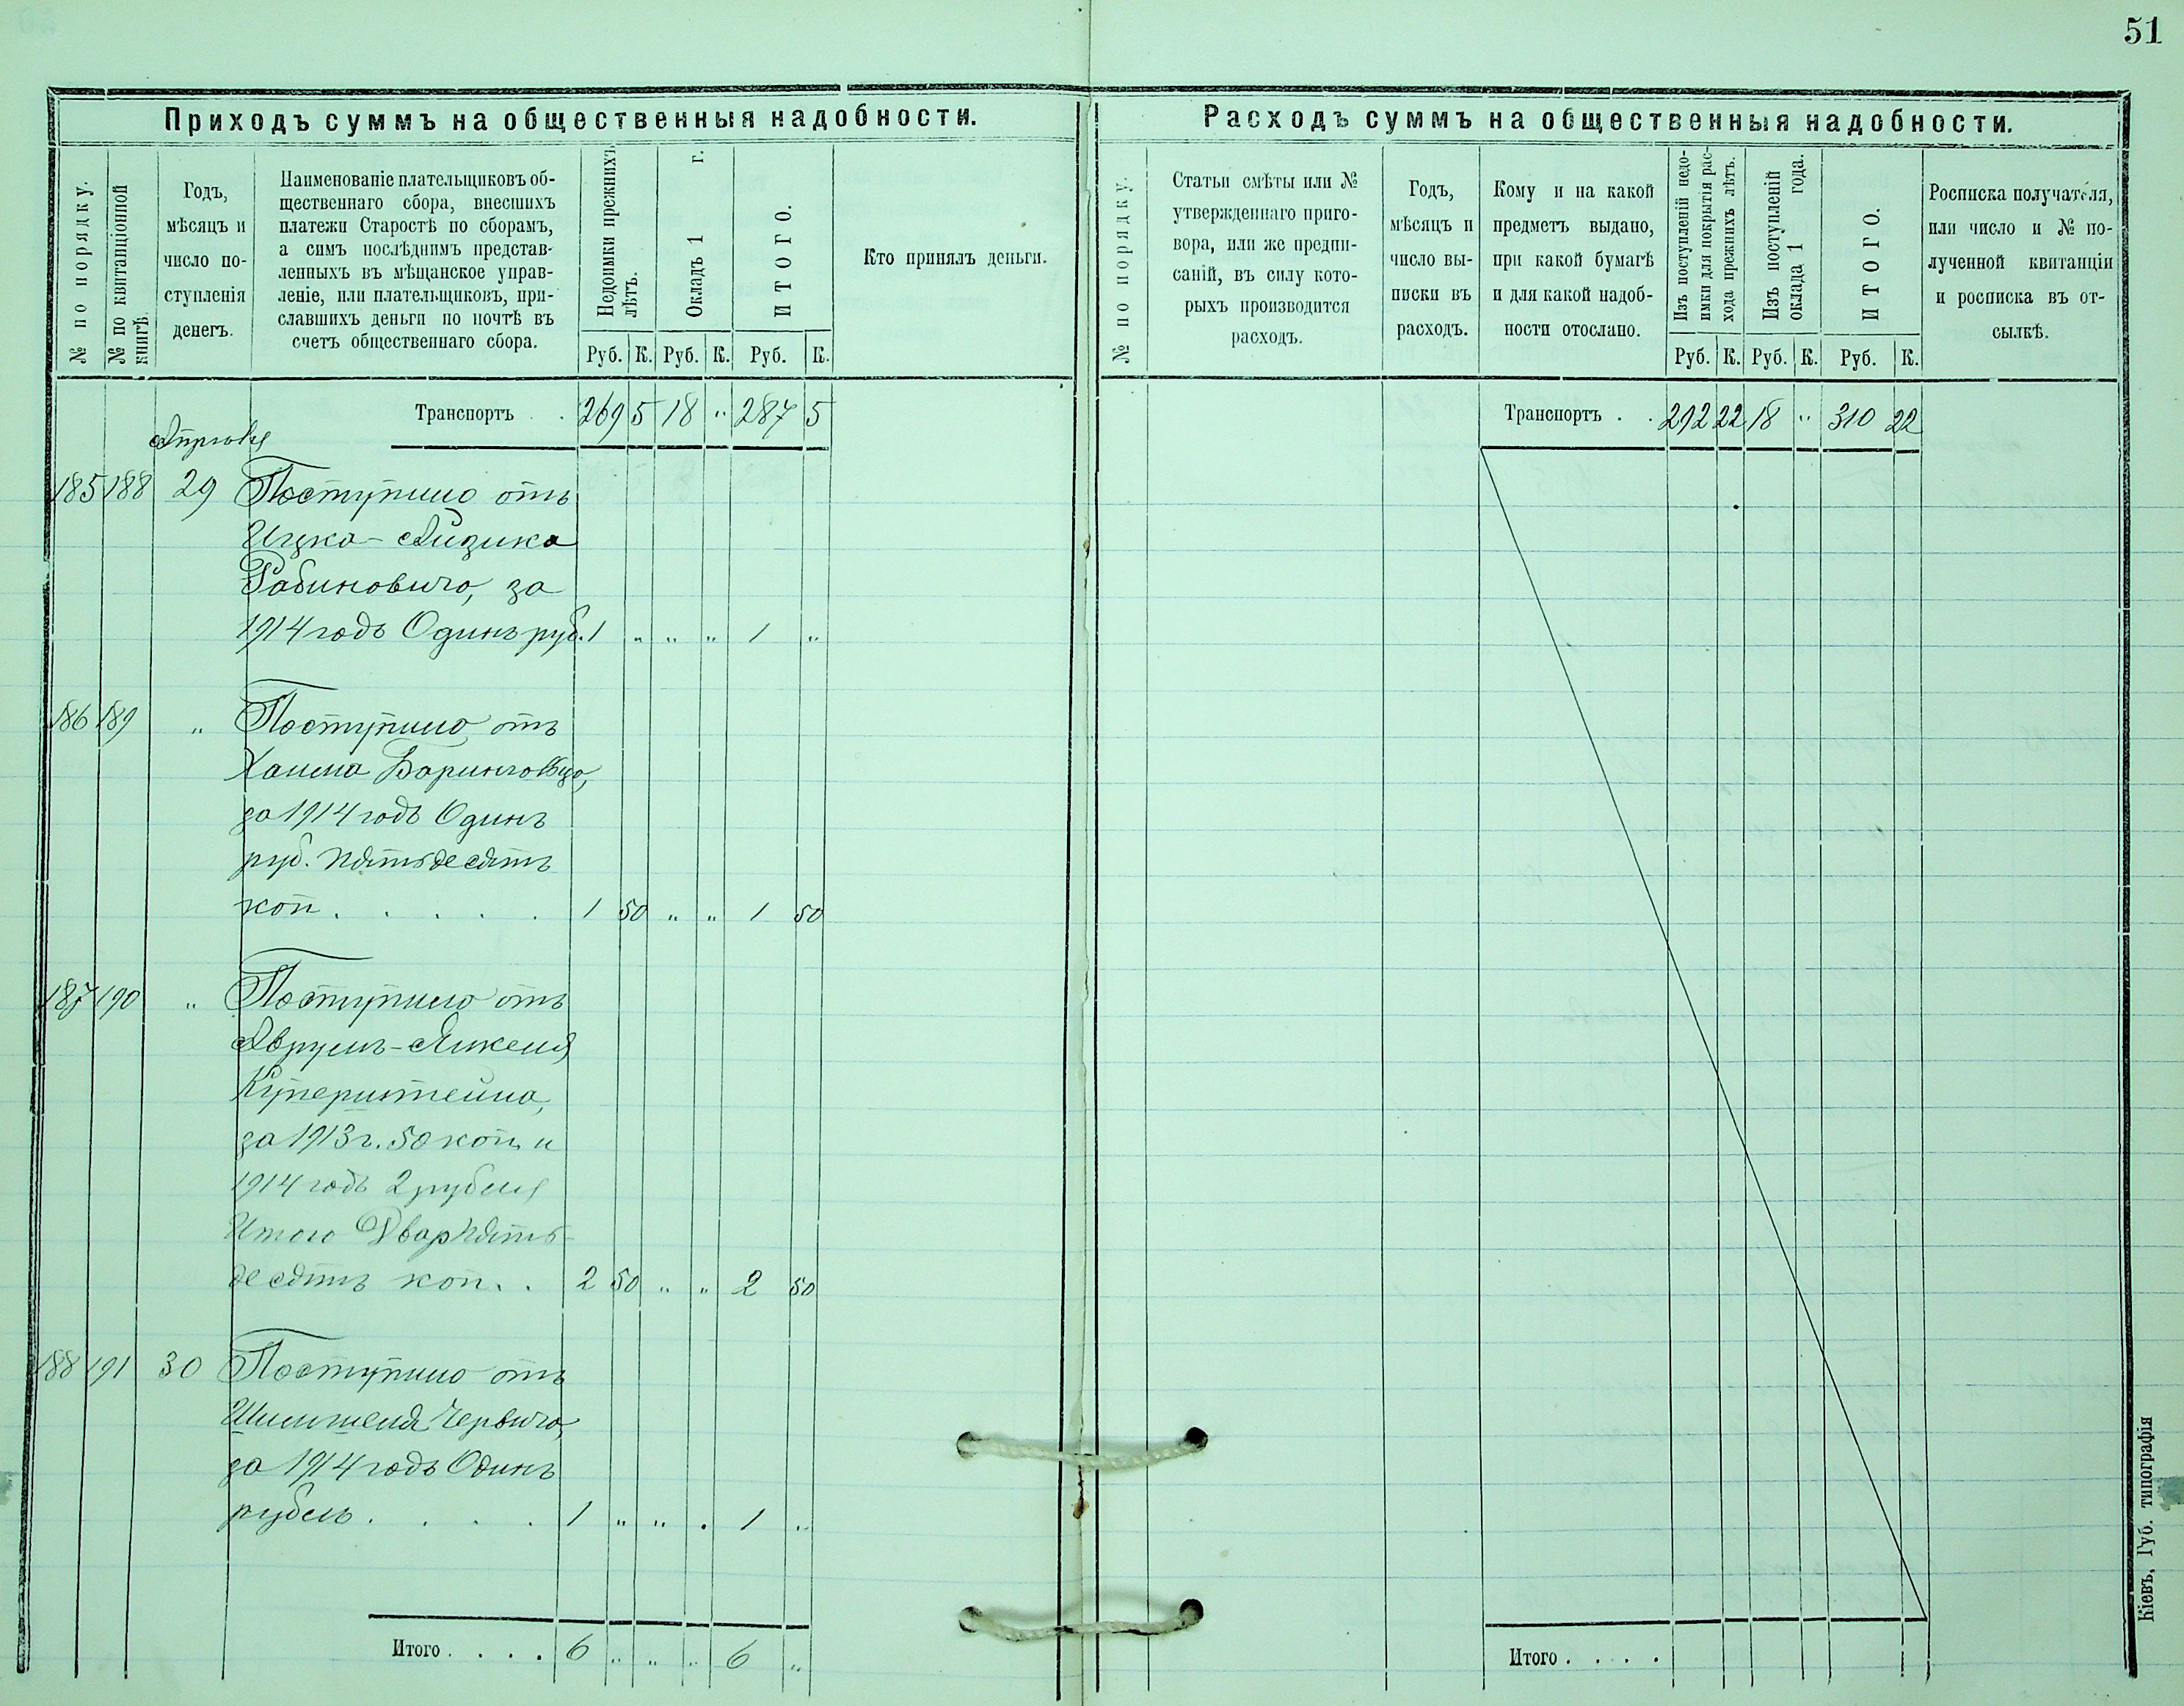 51
Приходъ суммъ на общественныя надобности.
№ по порядку.
№ по квитанціонной
книгѣ.
Годъ,
мѣсяцъ и
число по-
ступленія
денегъ.
Наименованіе плательщиковъ об-
щественнаго сбора, внесшихъ
платежи Старостѣ по сборамъ,
а симъ послѣднимъ представ-
ленныхъ въ мѣщанское управ-
леніе, или плательщиковъ, при-
славшихъ деньги по почтѣ въ
счетъ общественнаго сбора.
Недоимки прежнихъ
лѣтъ.
Окладъ 1 г.
ИТОГО.
Руб. К. Руб. К. Руб. К.
Кто принялъ деньги.
Транспортъ . . 269 5 18 " 287 5
Апрѣля
185 188 29 Поступило отъ
Ицка-Айзика
Рабиновича, за
1914 годъ Одинъ руб. 1 " " " 1 "
186 189 " Поступило отъ
Хаима
за 1914 годъ Одинъ
руб. пятьдесятъ
коп . . . . . 1 50 " " 1 50
187 190 " Поступило отъ
Аврумъ-Янкеля
Куперштейна,
за 1913 г. 50 коп. и
1914 годъ 2 рубля
Итого Два р пять-
десятъ коп. . 2 50 " " 2 50
188 191 30 Поступило отъ
Червича,
за 1914 годъ Одинъ
рубль . . . . 1 " " . 1 "
Итого . . . . 6 " " " 6 "
Расходъ суммъ на общественныя надобности.
№ по порядку.
Статьи смѣты или №
утвержденнаго приго-
вора, или же предпи-
саній, въ силу кото-
рыхъ производится
расходъ.
Годъ,
мѣсяцъ и
число вы-
писки въ
расходъ.
Кому и на какой
предметъ выдано,
при какой бумагѣ
и для какой надоб-
ности отослано.
Изъ поступленій недо-
имки для покрытія рас-
хода прежнихъ лѣтъ.
Изъ поступленій
оклада 1 года.
ИТОГО.
Руб. К. Руб. К. Руб. К.
Росписка получателя,
или число и № по-
лученной квитанціи
и росписка въ от-
сылкѣ.
Транспортъ . . 292 22 18 " 310 22
Итого . . . .
Кіевъ, Губ. типографія